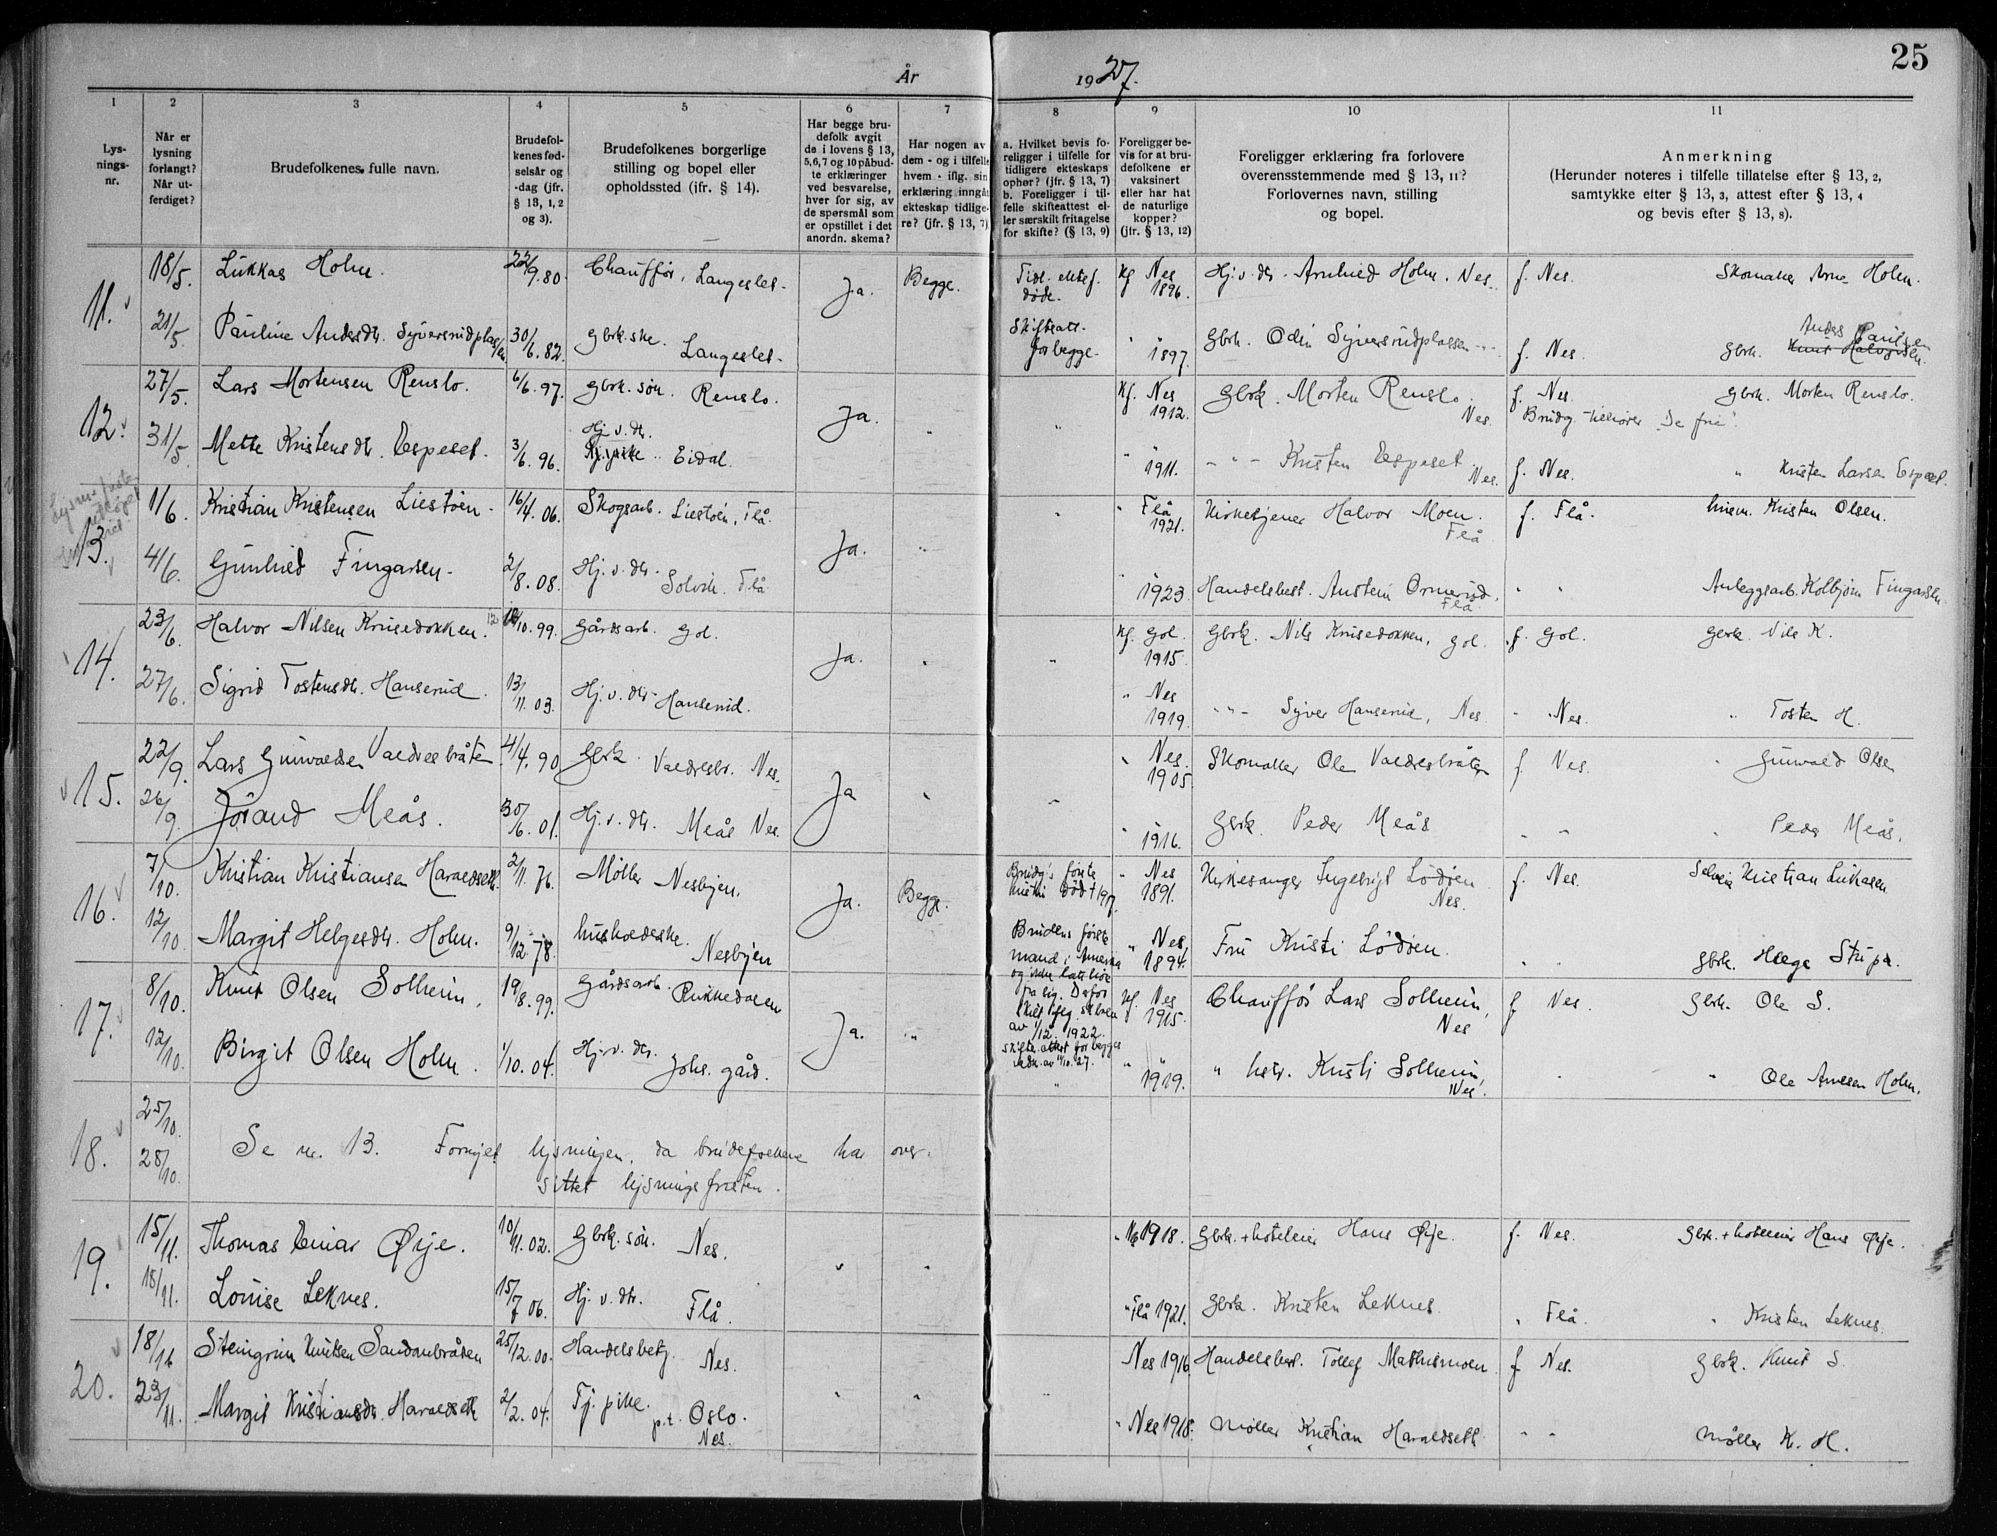 25
År 1927.
1 2 3 4 5 6 7 8 9 10 11
Lys-
nings-
nr.
Når er
lysning
forlangt?
Når ut-
ferdiget?
Brudefolkenes fulle navn.
Brudefol-
kenes fød-
selsår og
-dag (jfr.
§ 13, 1, 2
og 3).
Brudefolkenes borgerlige
stilling og bopel eller
opholdssted (jfr. § 14).
Har begge bru-
defolk avgit
de i lovens § 13,
5,6,7 og 10 påbud-
te erklæringer
ved besvarelse,
hver for sig, av
de spørsmål som
er opstillet i det
anordn. skema?
Har nogen av
dem - og i tilfelle
hvem - iflg. sin
erklæring inngått
ekteskap tidlige-
re? (jfr. § 13, 7)
a. Hvilket bevis fo-
religger i tilfelle for
tidligere ekteskaps
ophør? (jfr. § 13, 7)
b. Foreligger i til-
felle skifteattest el-
ler særskilt fritagelse
for skifte? (§ 13, 9)
Foreligger be-
vis for at bru-
defolkene er
vaksinert
eller har hat
de naturlige
kopper?
(jfr. § 13, 12)
Foreligger erklæring fra forlovere
overensstemmende med § 13, 11?
Forlovernes navn, stilling
og bopel.
Anmerkning
(Herunder noteres i tilfelle tillatelse efter § 13, 2,
samtykke efter § 13, 3, attest efter § 13, 4
og bevis efter § 13, 8).
11. 18/5 Lukkas Holm. 22/9.80. Chauffør, Langeslet. Ja. Begge. Tidl. ektef. døde. Kf Nes 1896. Hj. v. dtr. Arnhild Holm. Nes. f. Nes. Skomaker Arne Holm.
21/5 Pauline Andersdtr. Syversrudplassen 30/6.82. gbrk.ske. Langeslet. Skifteatt. for begge. " 1897. Gbrk. Odin Syversrudplassen f. Nes. gbrk. Anders Paulsen
12. 27/5. Lars Mortensen Renslo. 6/6.97. gbrk. søn. Renslo. Ja. " " Kf. Nes 1912. Gbrk. Morten Renslo. Nes f. Nes. gbrk. Morten Renslo.
Brudg. tilhører "De frie".
31/5. Mette Kristensdtr. Espeset. 3/6.96. Hj. v. dtr. Eidal. " 1911. - " - Kristen Espeset. Nes. f. Nes. " Kristen Larsen Espeset.
13. 1/6. Kristian Kristensen Liestøen. 16/4.06. Skogsarb. Liestøen, Flå. Ja. " " " Flå 1921. Kirketjener Halvor Moen. Flå f. Flå. husm. Kristen Olsen.
4/6. Gunhild Fingarsen. 2/8.08. Hj. v. dtr. Solvik. Flå " 1923. Handelsbest. Austein Ormerud. Flå " " Anleggsarb. Kolbjørn Fingarsen.
14. 23/6. Halvor Nilsen Krusedokken. /10.99. gårdsarb. Gol. Ja. " " Kf. Gol. 1915. Gbrk. Nils Krusedokken, Gol. f. Gol. gbrk. Nils K.
27/6. Sigrid Tostensdtr. Hanserud. 13/11.03. Hj. v. dtr. Hanserud. " Nes 1919. - " - Syver Hanserud, Nes " Nes. " Tosten H.
15. 22/9. Lars Gunvaldsen Valdresbråten 4/4.90 gbrk. Valdresbr. Nes. Ja " " " Nes. 1905. Skomaker Ole Valdresbråten f. Nes. " Gunvald Olsen
26/9. Jørand Meås. 30/6.01. Hj. v. dtr. Meås Nes. " 1916. Gbrk. Peder Meås " " " Peder Meås.
16. 7/10. Kristian Kristiansen Haraldseth. 2/11.76. Møller Nesbyen. Ja. Begge. Brudg's første hustru død " Nes 1891. Kirkesanger Ingebrigt Lødøen Nes. f. Nes. Selveier Kristian Lukasen
12/10. Margit Helgesdtr. Holm. 9/12.78. husholderske. Nesbyen Brudens første
mand i Amerika
og ikke latt høre
fra sig. Derfor
av 1/12 1922.
skifte.attest for begge
" Nes 1894. Fru Kristi Lødøen. " " gbrk. Helge Stripa.
17. 8/10. Knut Olsen Solheim. 19/8.99. gårdsarb. Rukkedalen Ja. " Kf. Nes 1915. Chauffør Lars Solheim, Nes f Nes. gbrk. Ole S.
12/10. Birgit Olsen Holm. 1/10.04. Hj. v. dtr. Johs. gård. " " " 1919. " hstr. Kristi Solheim, Nes. " " Ole Arnesen Holm.
18. 25/10.
28/10. Se nr. 13. Fornyet lysningen, da brudefolkene har over-
sittet lysningsfristen.
19. 15/11. Thomas Einar Ørje. 10/11.02. Gbrk. søn. Nes. " " 1918. gbrk. + hoteleier Hans Ørje. f. Nes. gbrk. + hoteleier Hans Ørje.
18/11. Louise Leknes. 15/7 06. Hj. v. dtr. Flå. " Flå 1921. gbrk. Kristen Leknes. " Flå. " Kristen Leknes.
20. 18/11 Steingrim Knutsen Sandanbråten 25/12.00. Handelsbetj. Nes. " " Nes 1916 Handelsbest. Tolleg Mathismoen f Nes. gbrk. Knut S.
23/11. Margit Kristiansdtr. Haraldseth 2/2.04. Tj. pike. p.t. Oslo. Nes. " Nes 1918. Møller Kristian Haraldseth " " Møller K. H.